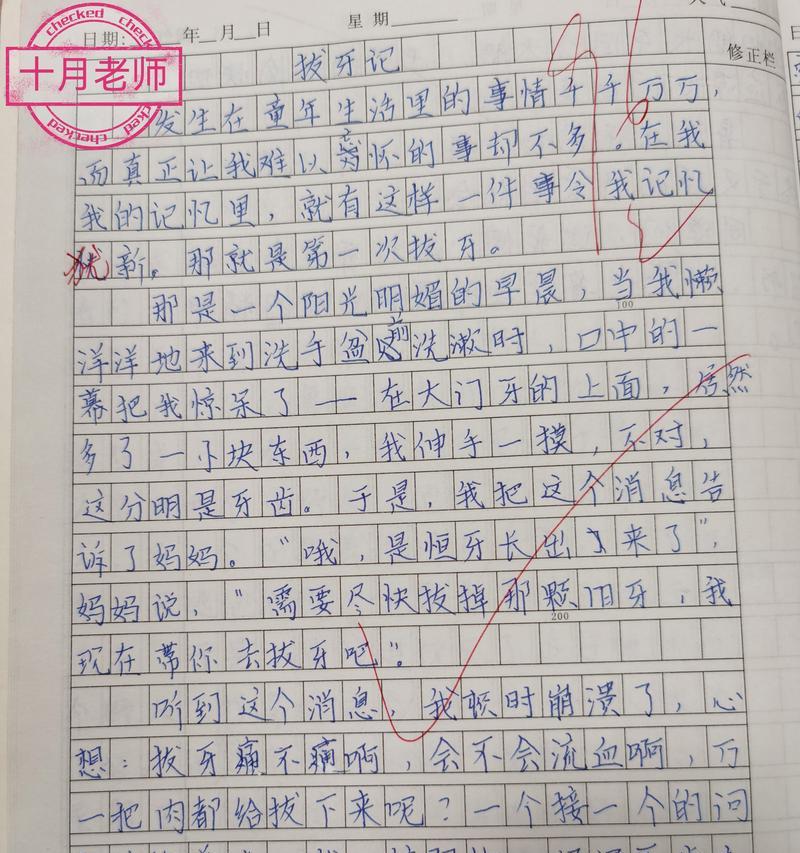 checked
十月老师
checked
日期: 年 月 日 星期
修正栏
96
拔牙记
发生在童年生活里的事情千千万万，
而真正让我难以忘怀的事却不多。在我
我的记忆里，就有这样一件事令我记忆
犹新。那就是第一次拔牙。
那是一个阳光明媚的早晨，当我懒
100
洋洋地来到洗手盆前洗漱时，口中的一
幕把我惊呆了——在大门牙的上面，居然
多了一小块东西，我伸手一摸，不对，
这分明是牙齿。于是，我把这个消息告
诉了妈妈。“哦，是恒牙长出来了”，
妈妈说，“需要尽快拔掉那颗旧牙，我
200
现在带你去拔牙吧”。
听到这个消息，我顿时崩溃了，心
想：拔牙痛不痛啊，会不会流血啊，万
一把肉都给拔下来呢？一个接一个的问